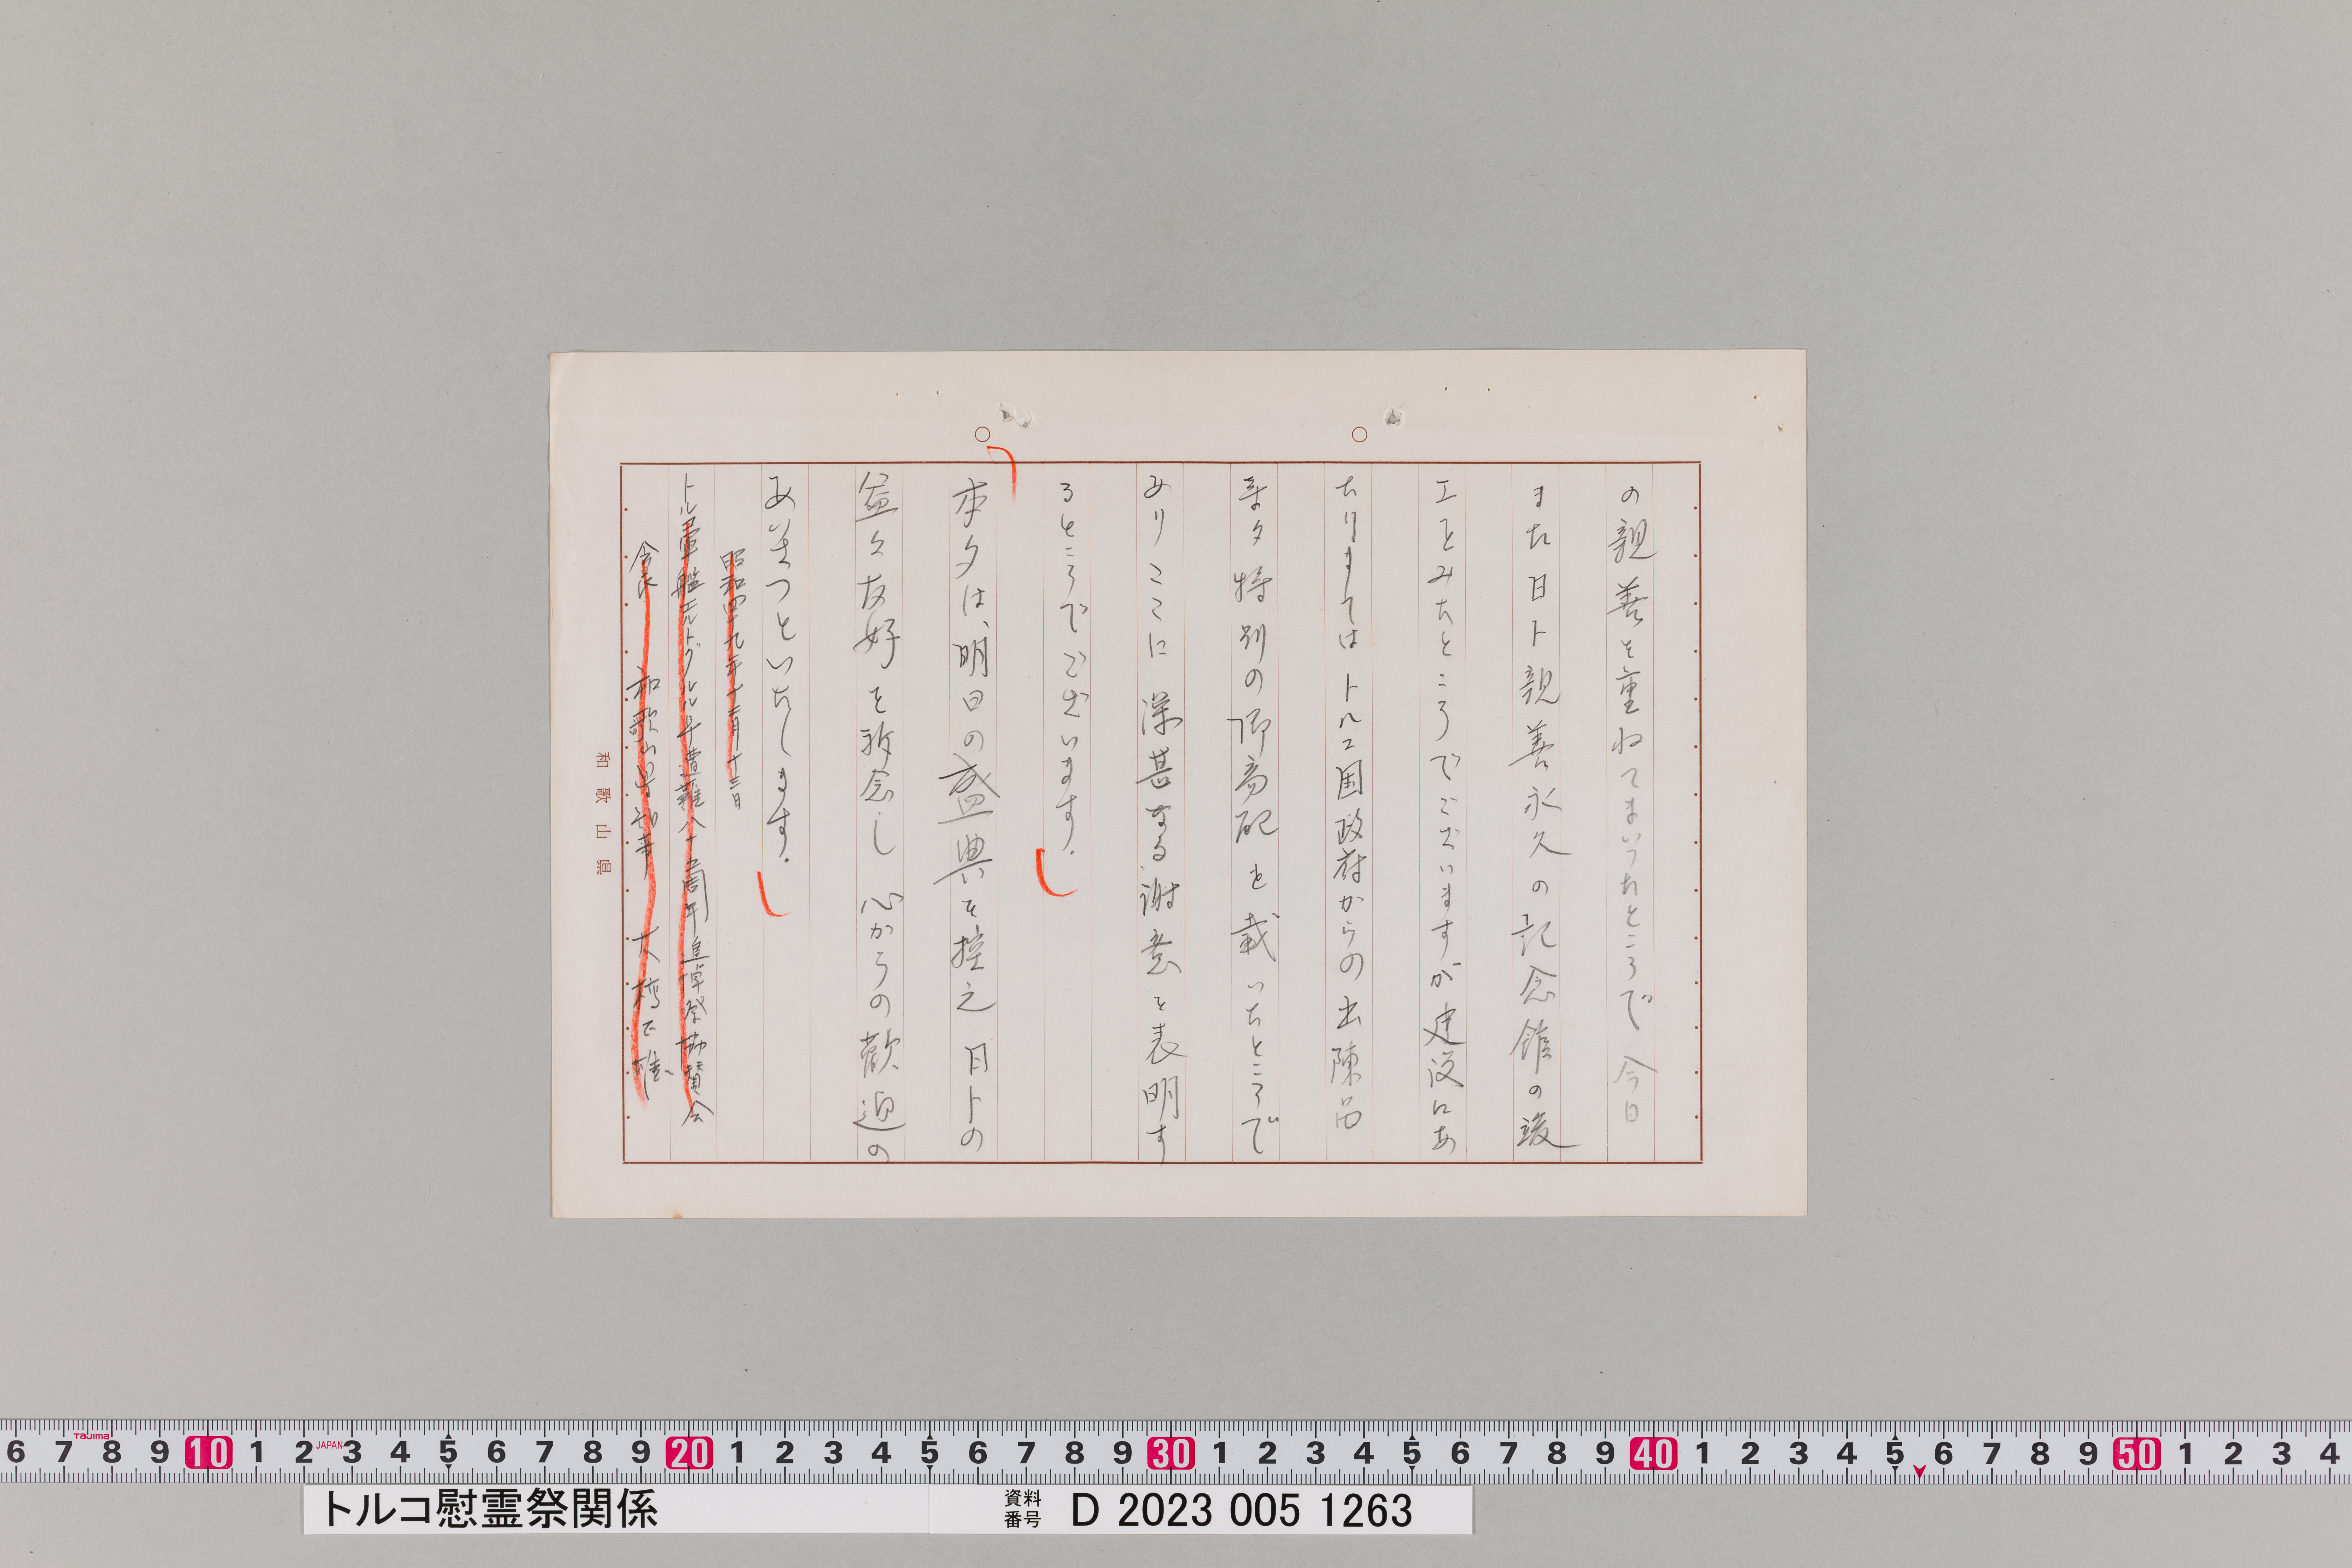 の親善を重ねてまいったところで 今日
また日ト親善永久の記念館の竣
工をみたところでございますが建設にあ
たりましては トルコ国政府からの出陳品
等々特別の御高配を戴いたところで
ありここに深甚なる謝意を表明す
るところでございます.
本夕は、明日の盛典を控え 日トの
益々友好を祈念し 心からの歓迎の
あいさつといたします.
昭和四十九年十一月十三日
トルコ軍艦エルトグルル号遭難八十五周年追悼祭協賛会
会長 和歌山県知事 大橋正雄
和歌山県
6 7 8 9 10 1 2 3 4 5 6 7 8 9 20 1 2 3 4 5 6 7 8 9 30 1 2 3 4 5 6 7 8 9 40 1 2 3 4 5 6 7 8 9 50 1 2 3 4
Tajima
JAPAN
トルコ慰霊祭関係
資料番号 D 2023 005 1263